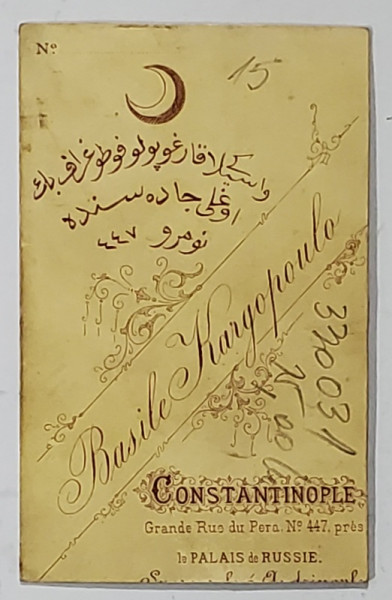 Nº
15
واسيلاكى قارغوپولو فوطوغراف بك
اوغلى جاده سنده
نومرو ٤٤٧
Basile Kargopoulo
330031
CONSTANTINOPLE
Grande Rue du Pera. Nº 447, près
le PALAIS de RUSSIE.